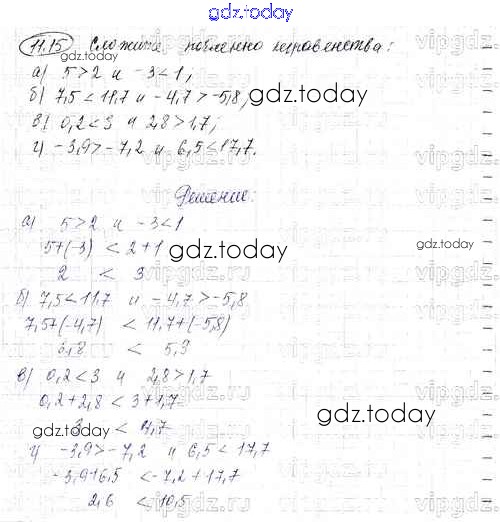 gdz.today
11.15 Сложите почленно неравенства:
а) 5>2 и -3<1;
б) 7,5<11,7 и -4,7>-5,8; gdz.today
в) 0,2<3 и 2,8>1,7;
г) -3,9>-7,2 и 6,5<17,7.
Решение:
а) 5>2 и -3<1
5+(-3) < 2+1 gdz.today gdz.today
2 < 3
б) 7,5<11,7 и -4,7>-5,8
7,5+(-4,7) < 11,7+(-5,8)
< 5,9
в) 0,2<3 и 2,8>1,7
0,2+2,8 < 3+1,7
gdz.today < 4,7 gdz.today
г) -3,9>-7,2 и 6,5<17,7
-3,9+6,5 <-7,2+17,7
2,6 <10,5
gdz.today